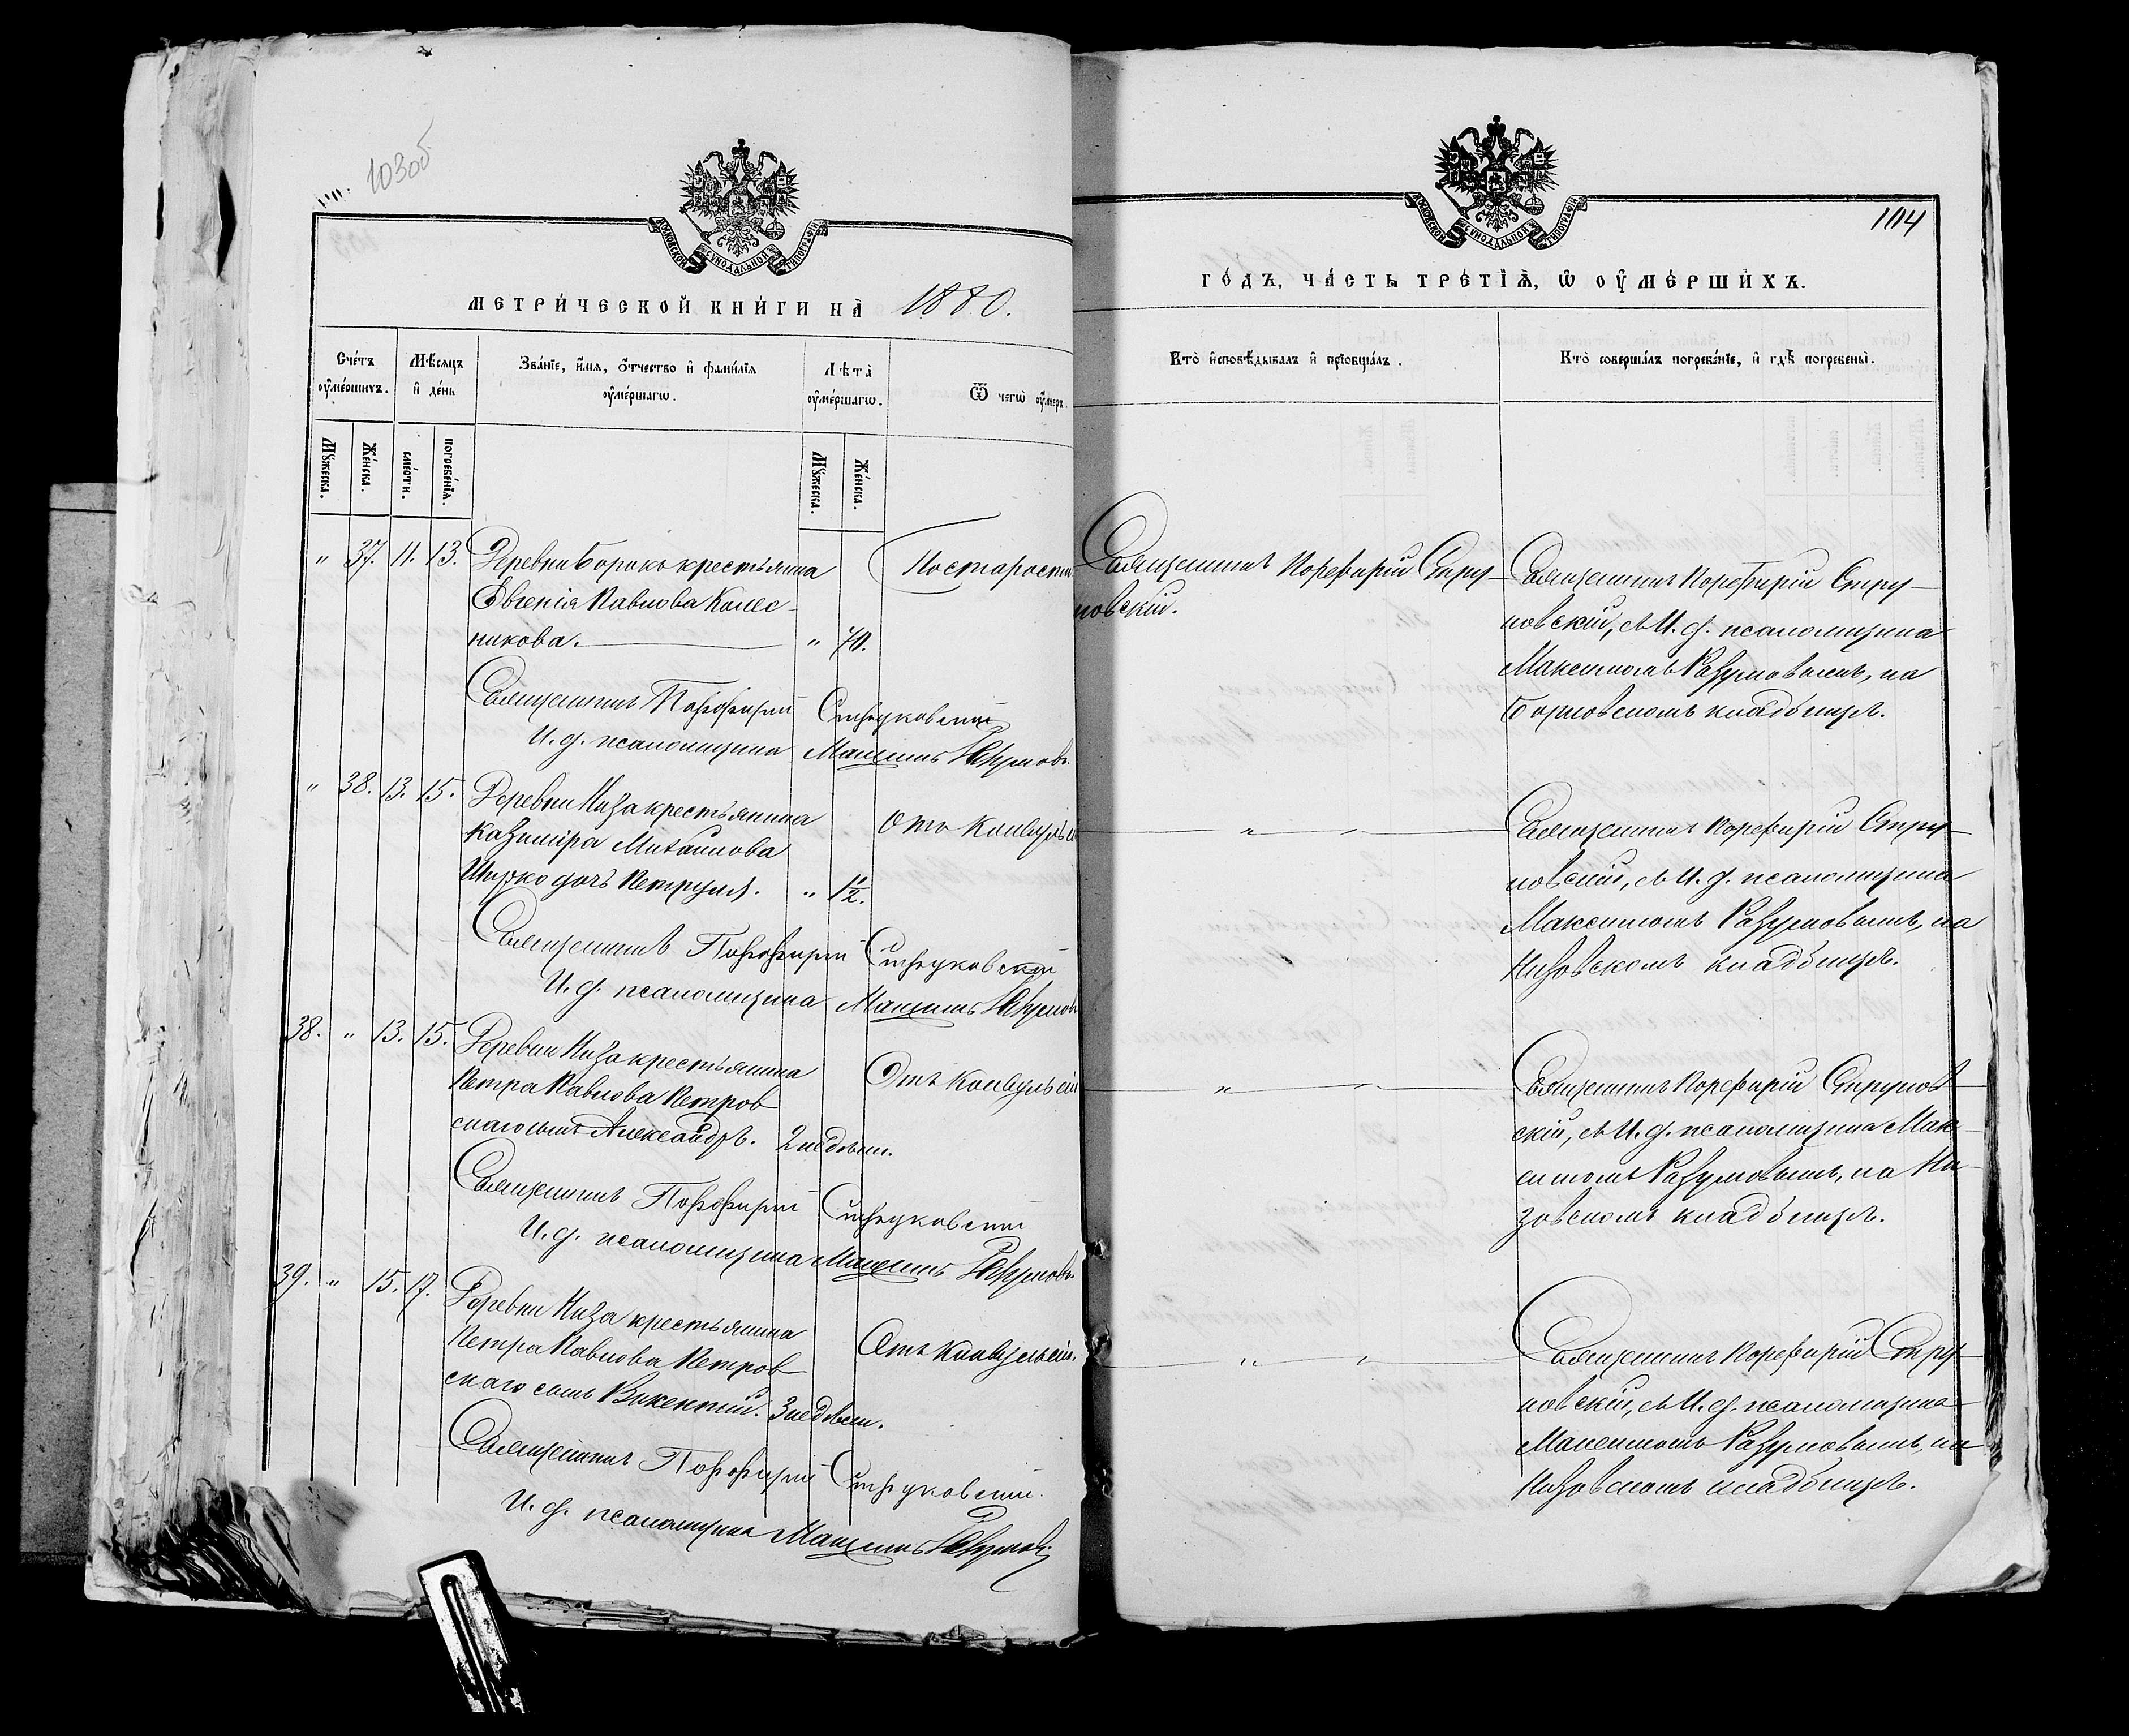 103об
МЕТРИ́ЧЕСКОЙ КНИ́ГИ НА̀ 1880.
Сче́тъ оу҆ме́ршихъ.
Мѣ́сяцъ и҆ де́нь
Зва́нїе, и҆́мя, о҆́тчество и҆ фами́лїя оу҆ме́ршагѡ.
Лѣ́та оу҆ме́ршагѡ.
Ѿ чегѡ̀ оу҆́меръ.
Мꙋ́жеска.
Же́нска.
сме́рти.
погребе́нїя.
Мꙋ́жеска.
Же́нска.
" 37. 11. 13. Деревни Бороко крестьянка
Евгенія Павлова Колес-
никова. " 70.
По старости
Священникъ Порфирій Струковскій
И. д. псаломщика Максимъ Разумовъ
" 38. 13. 15. Деревни Низа крестьянина
Казиміра Михайлова
дочь " 1/2.
Отъ конвульсій
Священникъ Порфирій Струковскій
И. д. псаломщика Максимъ Разумовъ
38. " 13. 15. Деревни Низа крестьянина
Петра Павлова Петров
скаго сынъ Александръ. 2 недѣли.
Отъ конвульсій
Священникъ Порфирій Струковскій
И. д. псаломщика Максимъ Разумовъ.
39. " 15. 17. Деревни Низа крестьянина
Петра Павлова Петров
скаго сынъ Викентій. 3 недѣли.
Отъ конвульсій.
Священникъ Порфирій Струковскій.
И. д. псаломщика Максимъ Разумовъ
104
ГО́ДЪ, ЧА́СТЬ ТРЕ́ТЇѦ, Ѡ҆ ОУ҆МЕ́РШИХЪ.
Кто̀ и҆сповѣ́дывалъ и҆ прїобща́лъ.
Кто̀ соверша́лъ погребе́нїе, и҆ гдѣ̀ погребены̀.
Священникъ Порфирій Стру-
ковскій.
Священникъ Порфирій Стру-
ковскій, съ И. д. псаломщика
Максимомъ Разумовымъ, на
Борковскомъ кладбищѣ.
" "
Священникъ Порфирій Стру-
ковскій, съ И. д. псаломщика
Максимомъ Разумовымъ, на
Низовскомъ кладбищѣ.
" "
Священникъ Порфирій Струков-
скій, съ И. д. псаломщика Мак-
симомъ Разумовымъ, на Ни-
зовскомъ кладбищѣ.
" "
Священникъ Порфирій Стру-
ковскій, съ И. д. псаломщика
Максимомъ Разумовымъ, на
Низовскомъ кладбищѣ.